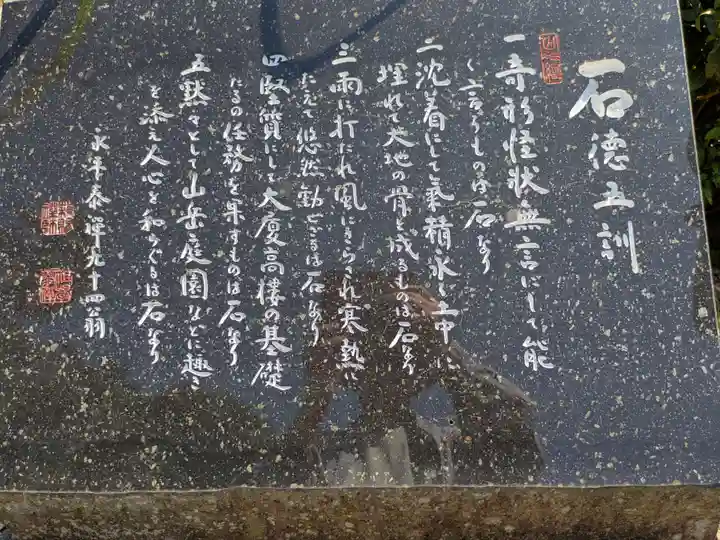 石徳五訓
一奇形怪状無言にして能
く言うものは石なり
二沈着にして氣精永く土中に
埋れて大地の骨と成るものは石なり
三雨に打たれ風にさらされ寒熱に
たえて悠然動ぜざるは石なり
四堅質にして大廈高樓の基礎
たるの任務を果すものは石なり
五黙々として山岳庭園などに趣き
を添え人心を和らぐるは石なり
永平泰禅九十四翁